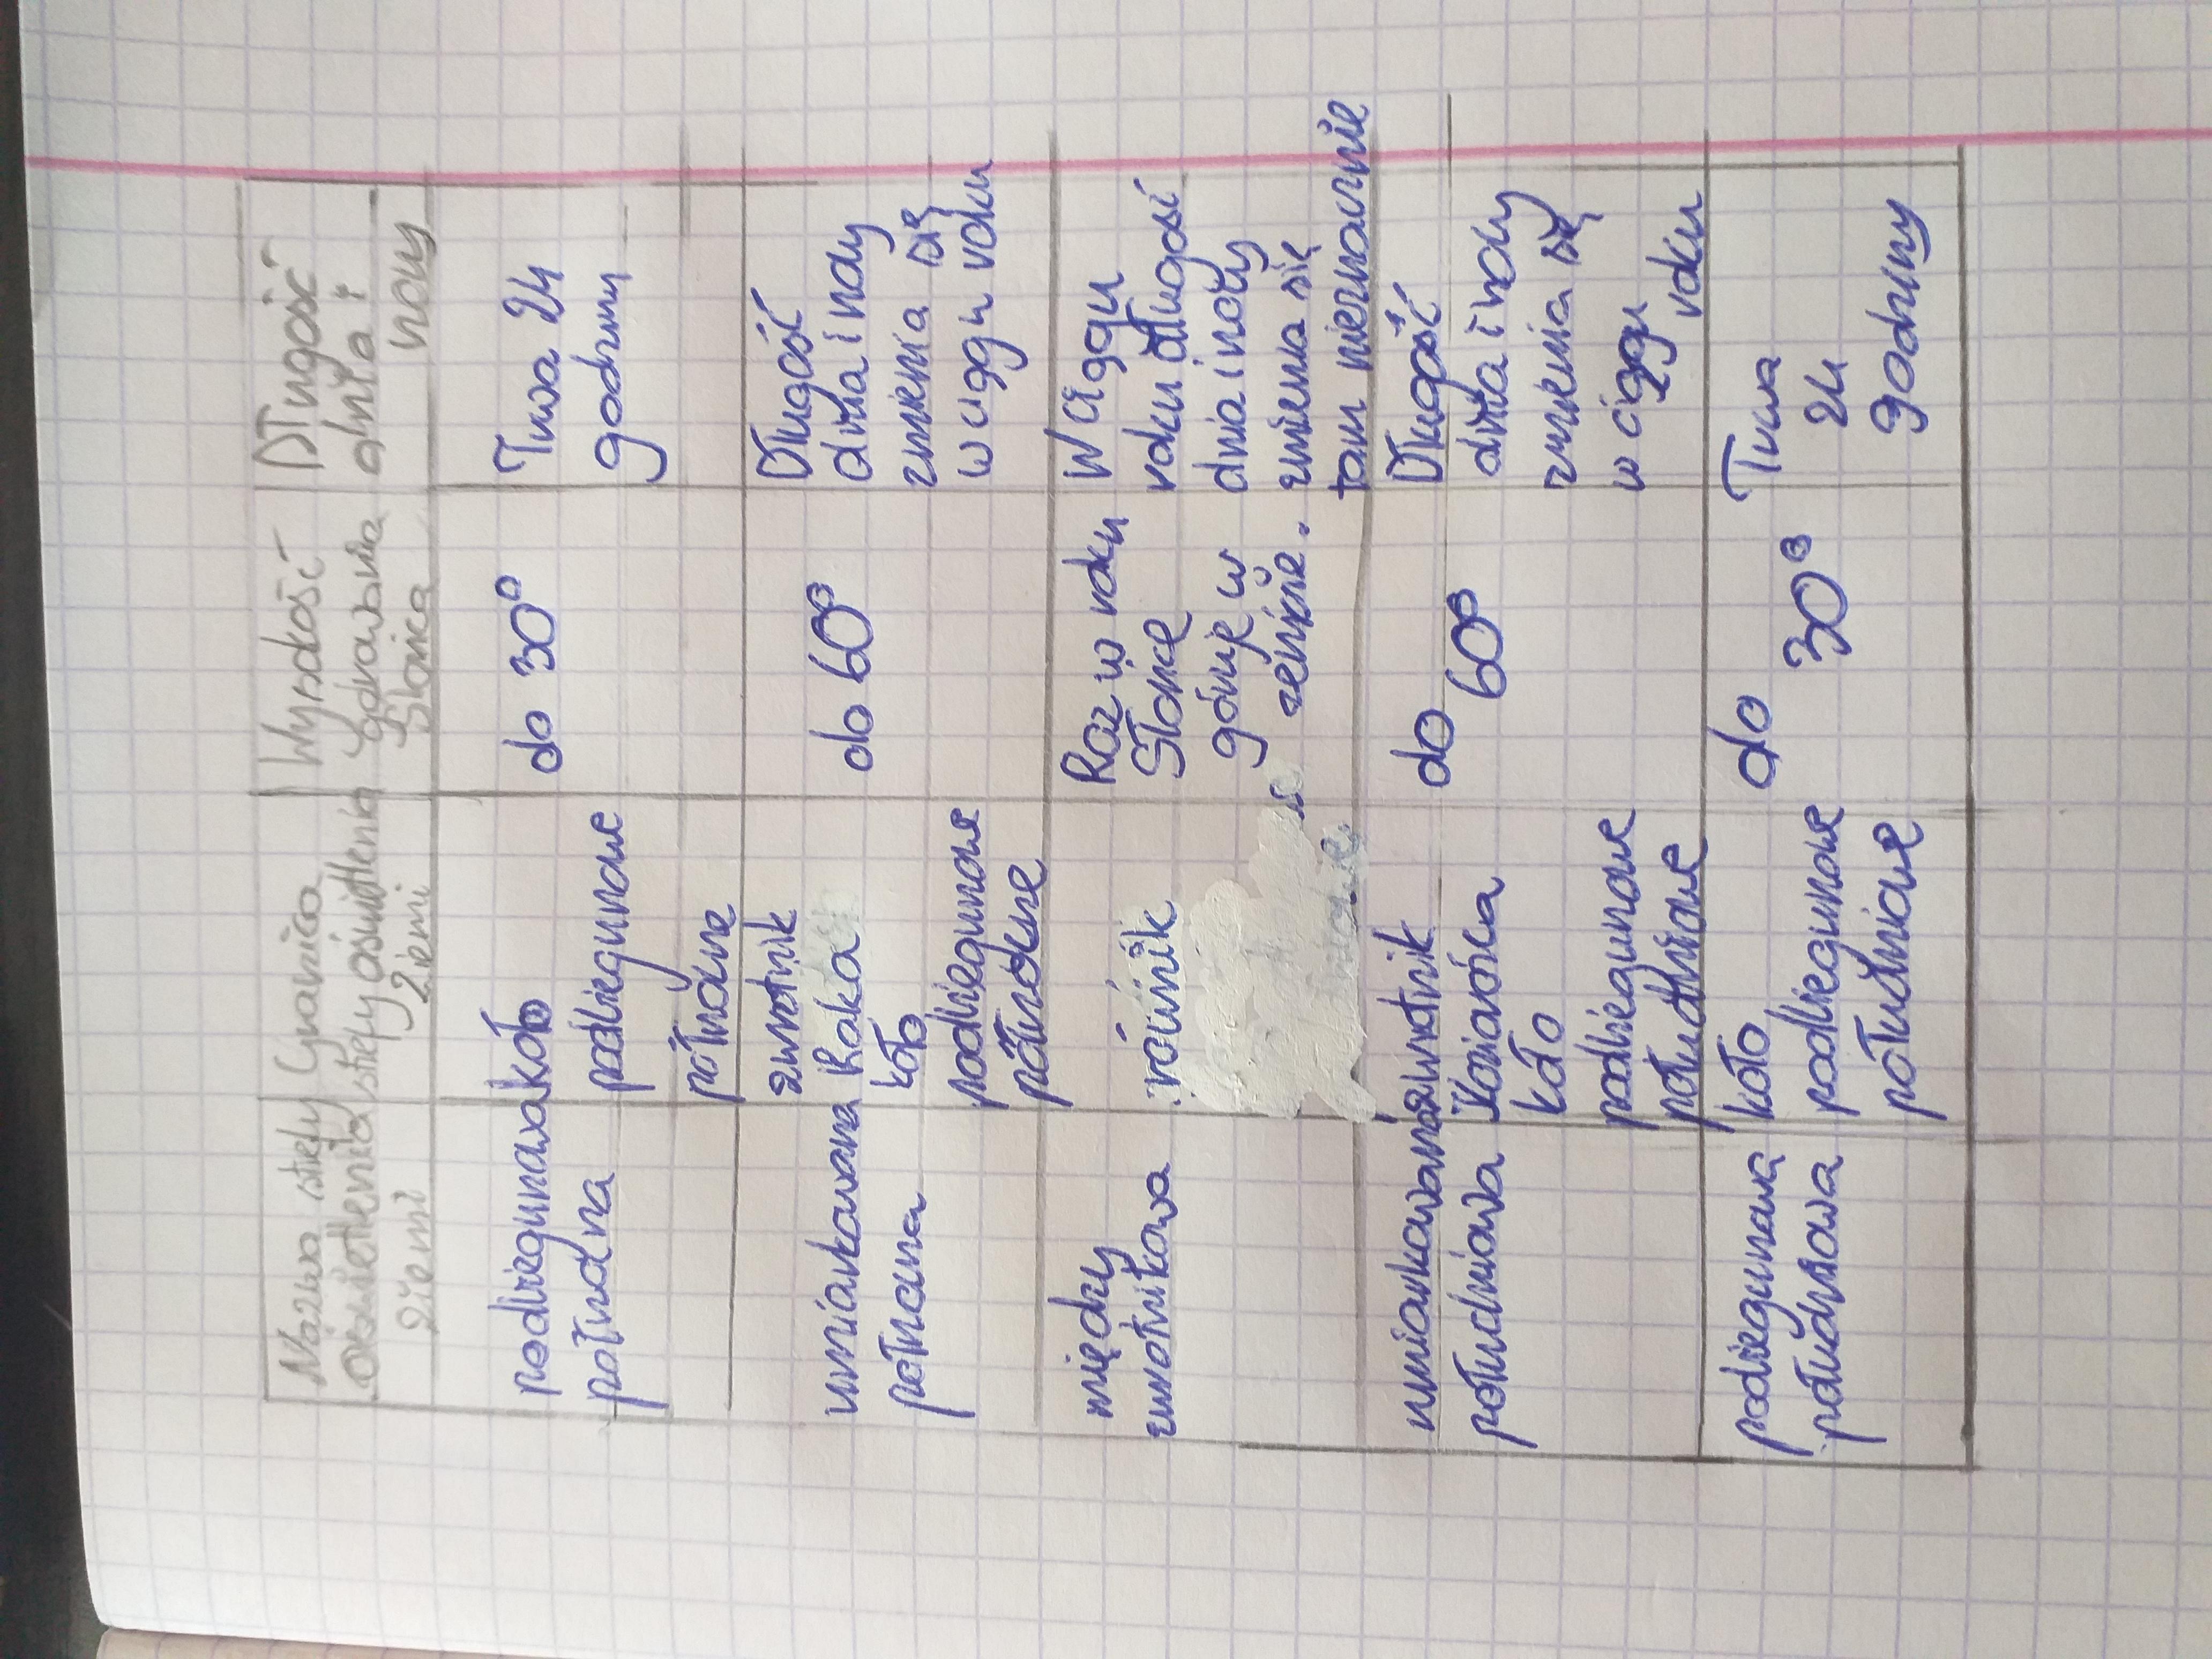 Nazwa strefy
oświetlenia
Ziemi
Granica
strefy oświetlenia
Ziemi
Wysokość
górowania
Słońca
Długość
dnia i
nocy
podbiegunowa
północna
koło
podbiegunowe
północne
do 30°
Trwa 24
godziny
umiarkowana
północna
zwrotnik
Raka
koło
podbiegunowe
północne
do 60°
Długość
dnia i nocy
zmienia się
w ciągu roku
między
zwrotnikowa
równik
Raz w roku
Słońce
góruje w
zenicie.
W ciągu
roku długość
dnia i nocy
zmienia się
tam nieznacznie
umiarkowana
południowa
zwrotnik
Koziorożca
koło
podbiegunowe
południowe
do
60°
Długość
dnia i nocy
zmienia się
w ciągu
roku
podbiegunowa
południowa
koło
podbiegunowe
południowe
do
30°
Trwa
24
godziny